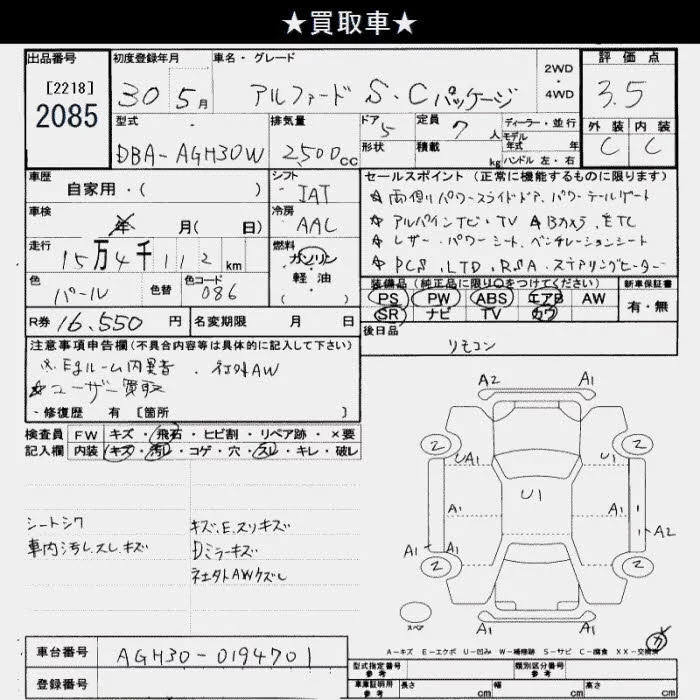 ★買取車★
出品番号 初度登録年月 車名・グレード 評価点
[2218]
2085
30 5月 アルファード S・Cパッケージ 2WD・4WD 3.5
型式 排気量 ドア 5 定員 7人 ディーラー・並行
モデル年式 年
外装 内装
DBA-AGH30W 2500cc 形状 積載 kg ハンドル 左・右 C C
車歴 シフト セールスポイント(正常に機能するものに限ります)
自家用・( ) IAT ☆両側パワースライドドア、パワーテールゲート
車検 年 月( 日) 冷房 AAC ☆アルパインナビ・TV ☆Bカメラ、ETC
走行 15万4千112km 燃料 ガソリン 軽油 ( ) ☆レザー・パワーシート、ベンチレーションシート
☆PCS、LTD、RSA、ステアリングヒーター
色 パール 色替 色コード 086
装備品(純正品に限り○をつけてください) 新車保証書
PS PW ABS エアB AW 有・無
SR ナビ TV カワ
R券 16,550円 名変期限 月 日
後日品 リモコン
注意事項申告欄(不具合内容等は具体的に記入して下さい)
※Egルーム内異音、社外AW
☆ユーザー買取
・修復歴 有 [箇所 ]
検査員 FW キズ・飛石・ヒビ割・リペア跡・×要
記入欄 内装 キズ・汚レ・コゲ・穴・スレ・キレ・破レ
シートシワ
車内汚レ、スレ、キズ
キズ、E、スリキズ
Dミラーキズ
社外AWケズレ
A2 A1
2 2
UA1 A1
U1
A1 A1 A1
A2
A1 A1 A1
2 2
スペア
ガ
A-キズ E-エクボ U-凹み W-補修跡 S-サビ C-腐食 XX-交換済
車台番号 AGH30-0194701
登録番号
型式指定番号 参考 類別区分番号 参考
車庫証明用 参考 長さ cm 幅 cm 高さ cm